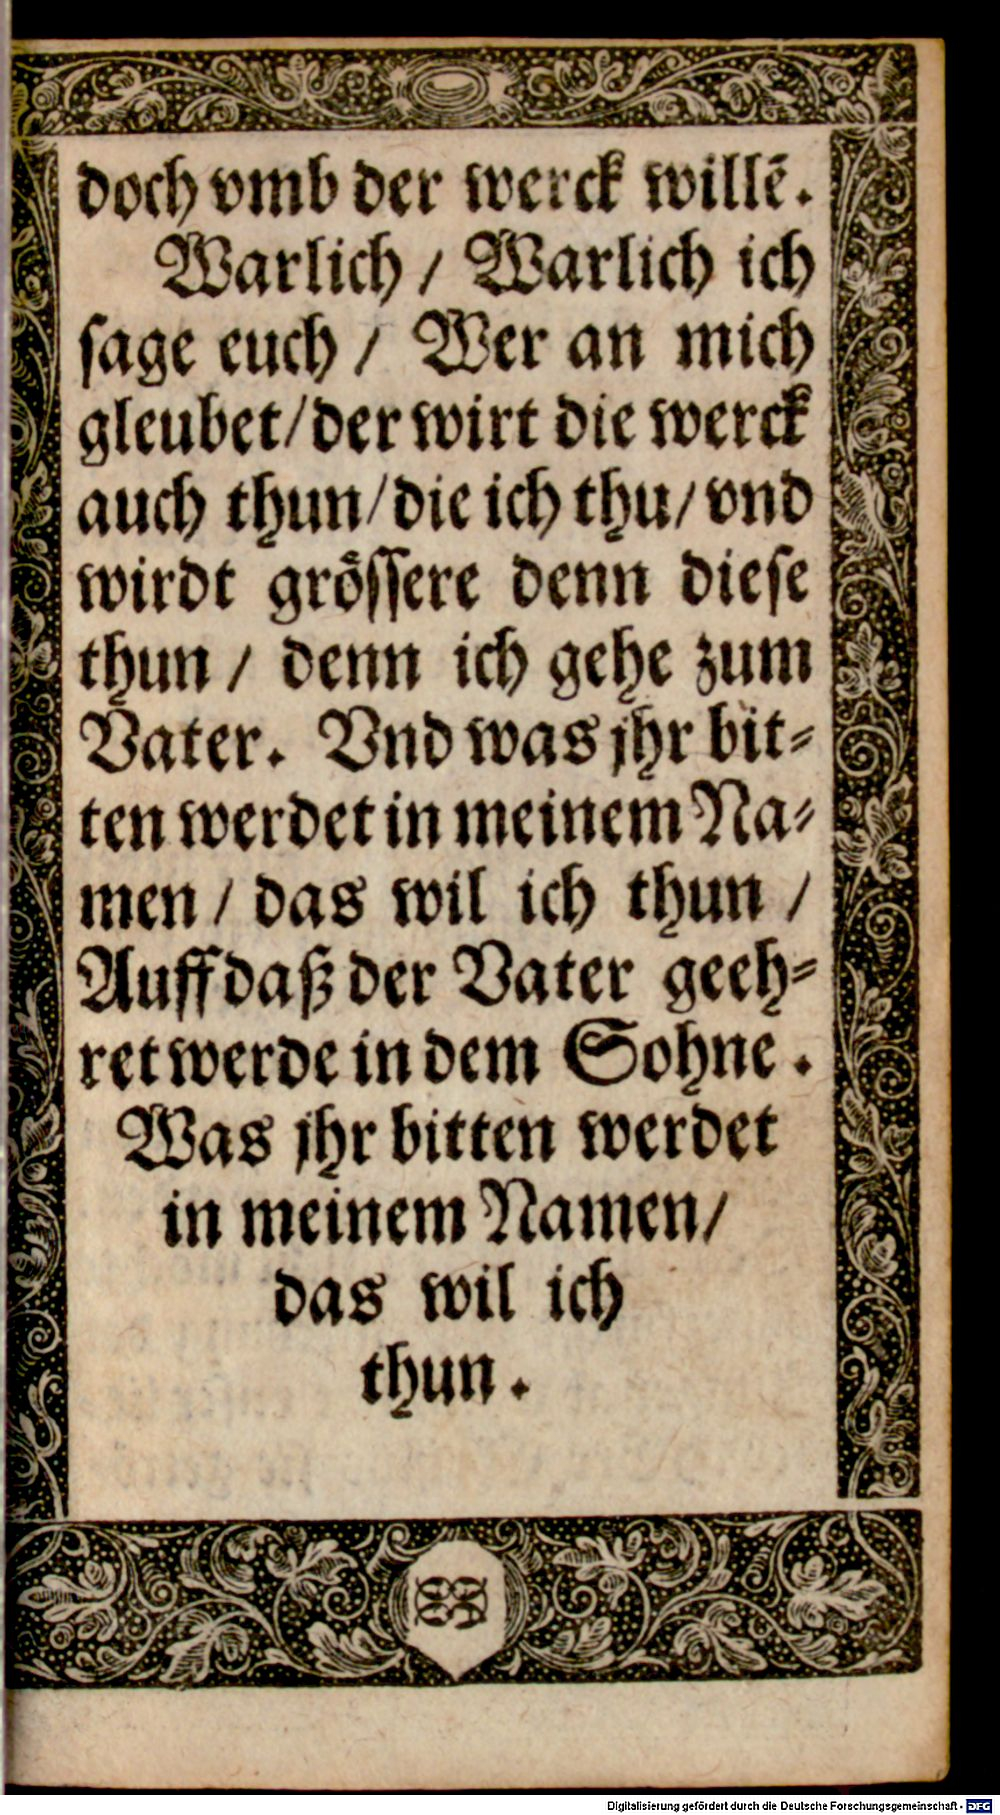 doch vmb der werck willē.
Warlich / Warlich ich
ſage euch / Wer an mich
gleubet/der wirt die werck
auch thun/die ich thu/vnd
wirdt gröſſere denn dieſe
thun / denn ich gehe zum
Vater. Vnd was jhr bit⸗
ten werdet in meinem Na⸗
men / das wil ich thun /
Auff daß der Vater geeh⸗
ret werde in dem Sohne.
Was jhr bitten werdet
in meinem Namen/
das wil ich
thun.
Digitalisierung gefördert durch die Deutsche Forschungsgemeinschaft - DFG